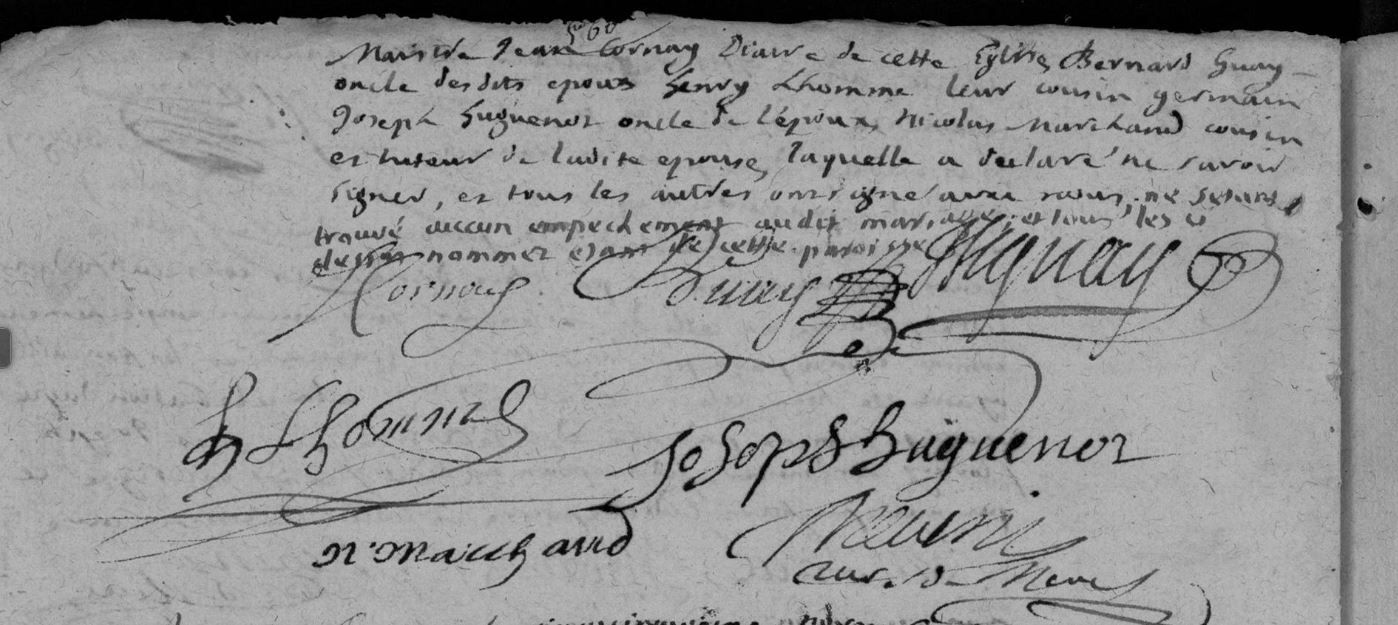 Maistre Jean Cornay Diacre de cette Eglise, Bernard Guay
oncle desdits epoux henry Lhomme leur cousin germain
Joseph huguenot oncle de l'epoux, Nicolas Marchand cousin
et tuteur de ladite epouse, laquelle a declaré ne savoir
signer, et tous les autres ont signé avec nous, ne setant
trouvé aucun empechement audit mariage, et tous les ci
dessus nommez etant de cette paroisse
JCornay BGuay Guay
h Lhomme
Joseph huguenot
N. Marchand
curé